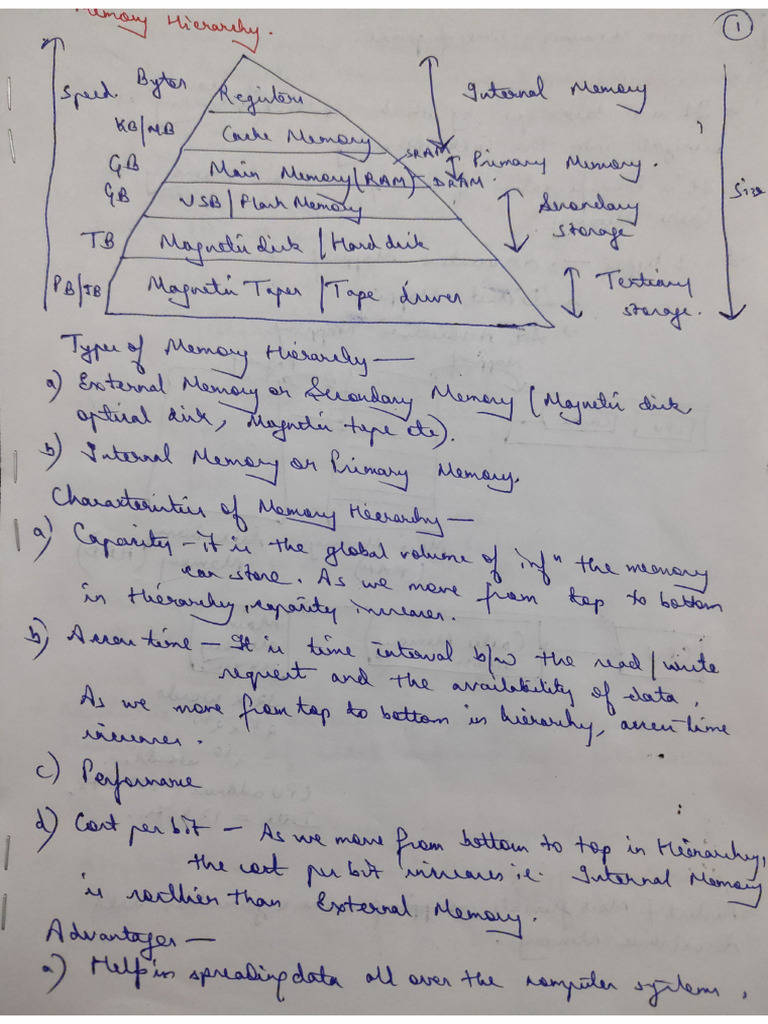 Memory Hierarchy.
1
Speed
Bytes
Registers
Internal Memory
KB/MB
Cache Memory
SRAM
GB
Main Memory (RAM)
DRAM
Primary Memory.
GB
USB/Flash Memory
Secondary
storage
Size
TB
Magnetic disk/Hard disk
PB/TB
Magnetic Tapes/Tape drives
Tertiary
storage.
Types of Memory Hierarchy —
a) External Memory or Secondary Memory (Magnetic disk,
optical disk, Magnetic tape etc).
b) Internal Memory or Primary Memory.
Characteristics of Memory Hierarchy —
a) Capacity - it is the global volume of infⁿ the memory
can store. As we move from top to bottom
in Hierarchy, capacity increases.
b) Access time - It is time interval b/w the read/write
request and the availability of data,
As we move from top to bottom in hierarchy, access time
increases.
c) Performance
d) Cost per bit - As we move from bottom to top in Hierarchy,
the cost per bit increases i.e. Internal Memory
is costlier than External Memory.
Advantages —
a) Help in spreading data all over the computer systems,